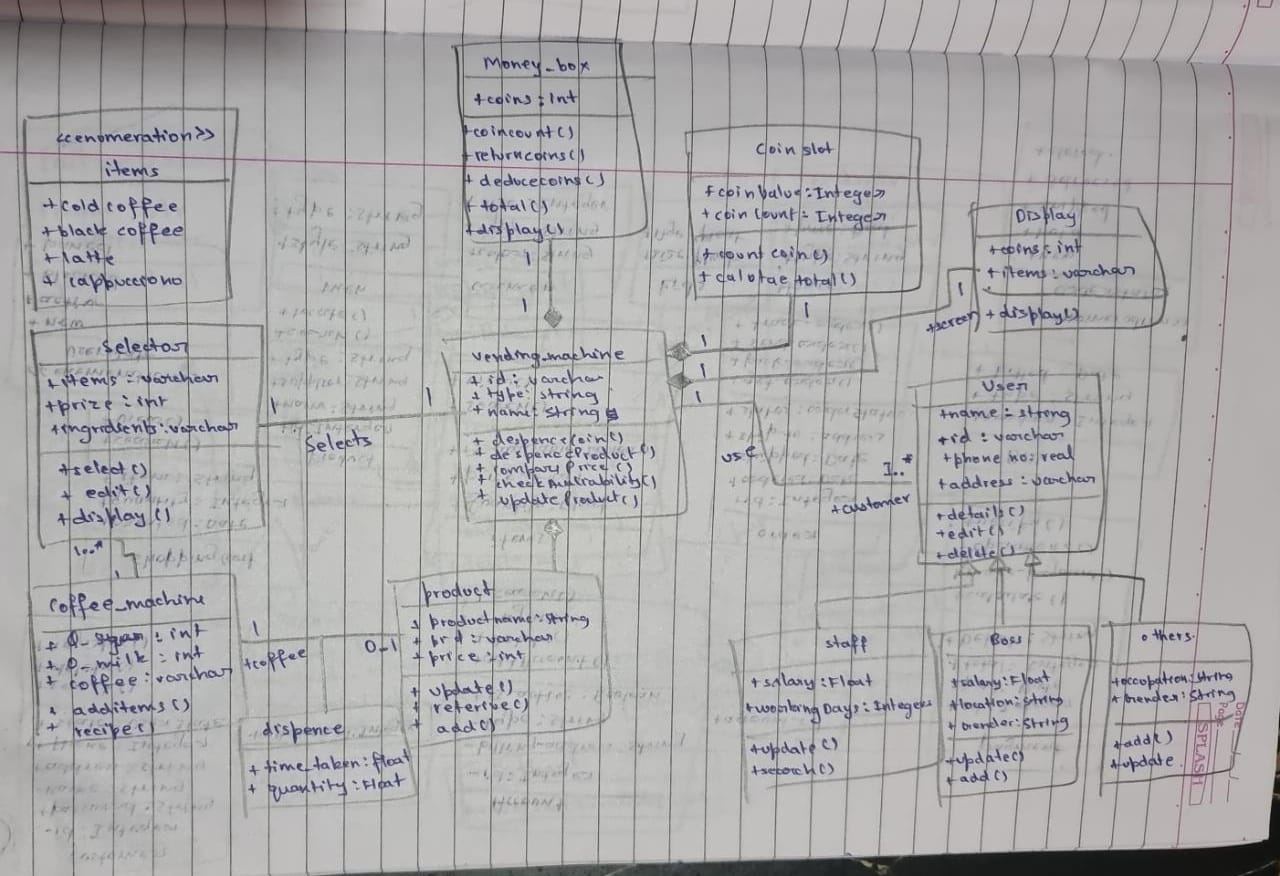 Money_box
+coins : Int
+coincount()
+returncoins()
+ deducecoins()
+ total()
+display()
<<enomeration>>
items
+cold coffee
+black coffee
+ latte
+ cappuccono
Coin slot
+coinValue : Integer
+ coin Count = Integer
+ count coin()
+ calotae total()
Display
+coins : int
+items : varchar
+ display()
+screen
1
1
1
1
1
1
Selector
+items : varchar
+prize : int
+ingridients : varchar
+select()
+ edit()
+ display()
1
1
Selects
vending_machine
+ id : varchar
+ type : string
+ name : String
+ despencecoin()
+ despenceProduct()
+ compary Price()
+ check Availability()
+ update Product()
1
use
1..*
+customer
User
+name : strong
+id : varchar
+phone no : real
+address : varchar
+details()
+edit()
+delete()
1..*
1
coffee_machine
: int
+ Q_milk : int
+ coffee : varchar
+ additems()
+ recipe()
1
+coffee
0-1
product
+ productname : String
+ prd : varchar
+ price : int
+ update()
+ add()
dispence
+ time_taken : float
+ quantity : Float
staff
+salary : Float
+working Days : Integer
+update()
+search()
Boss
+salary : Float
+location : String
+ Gender : String
+update()
+ add()
others
+occupation : String
+ Gender : String
+add()
+ update
Date
Page
SPLASH